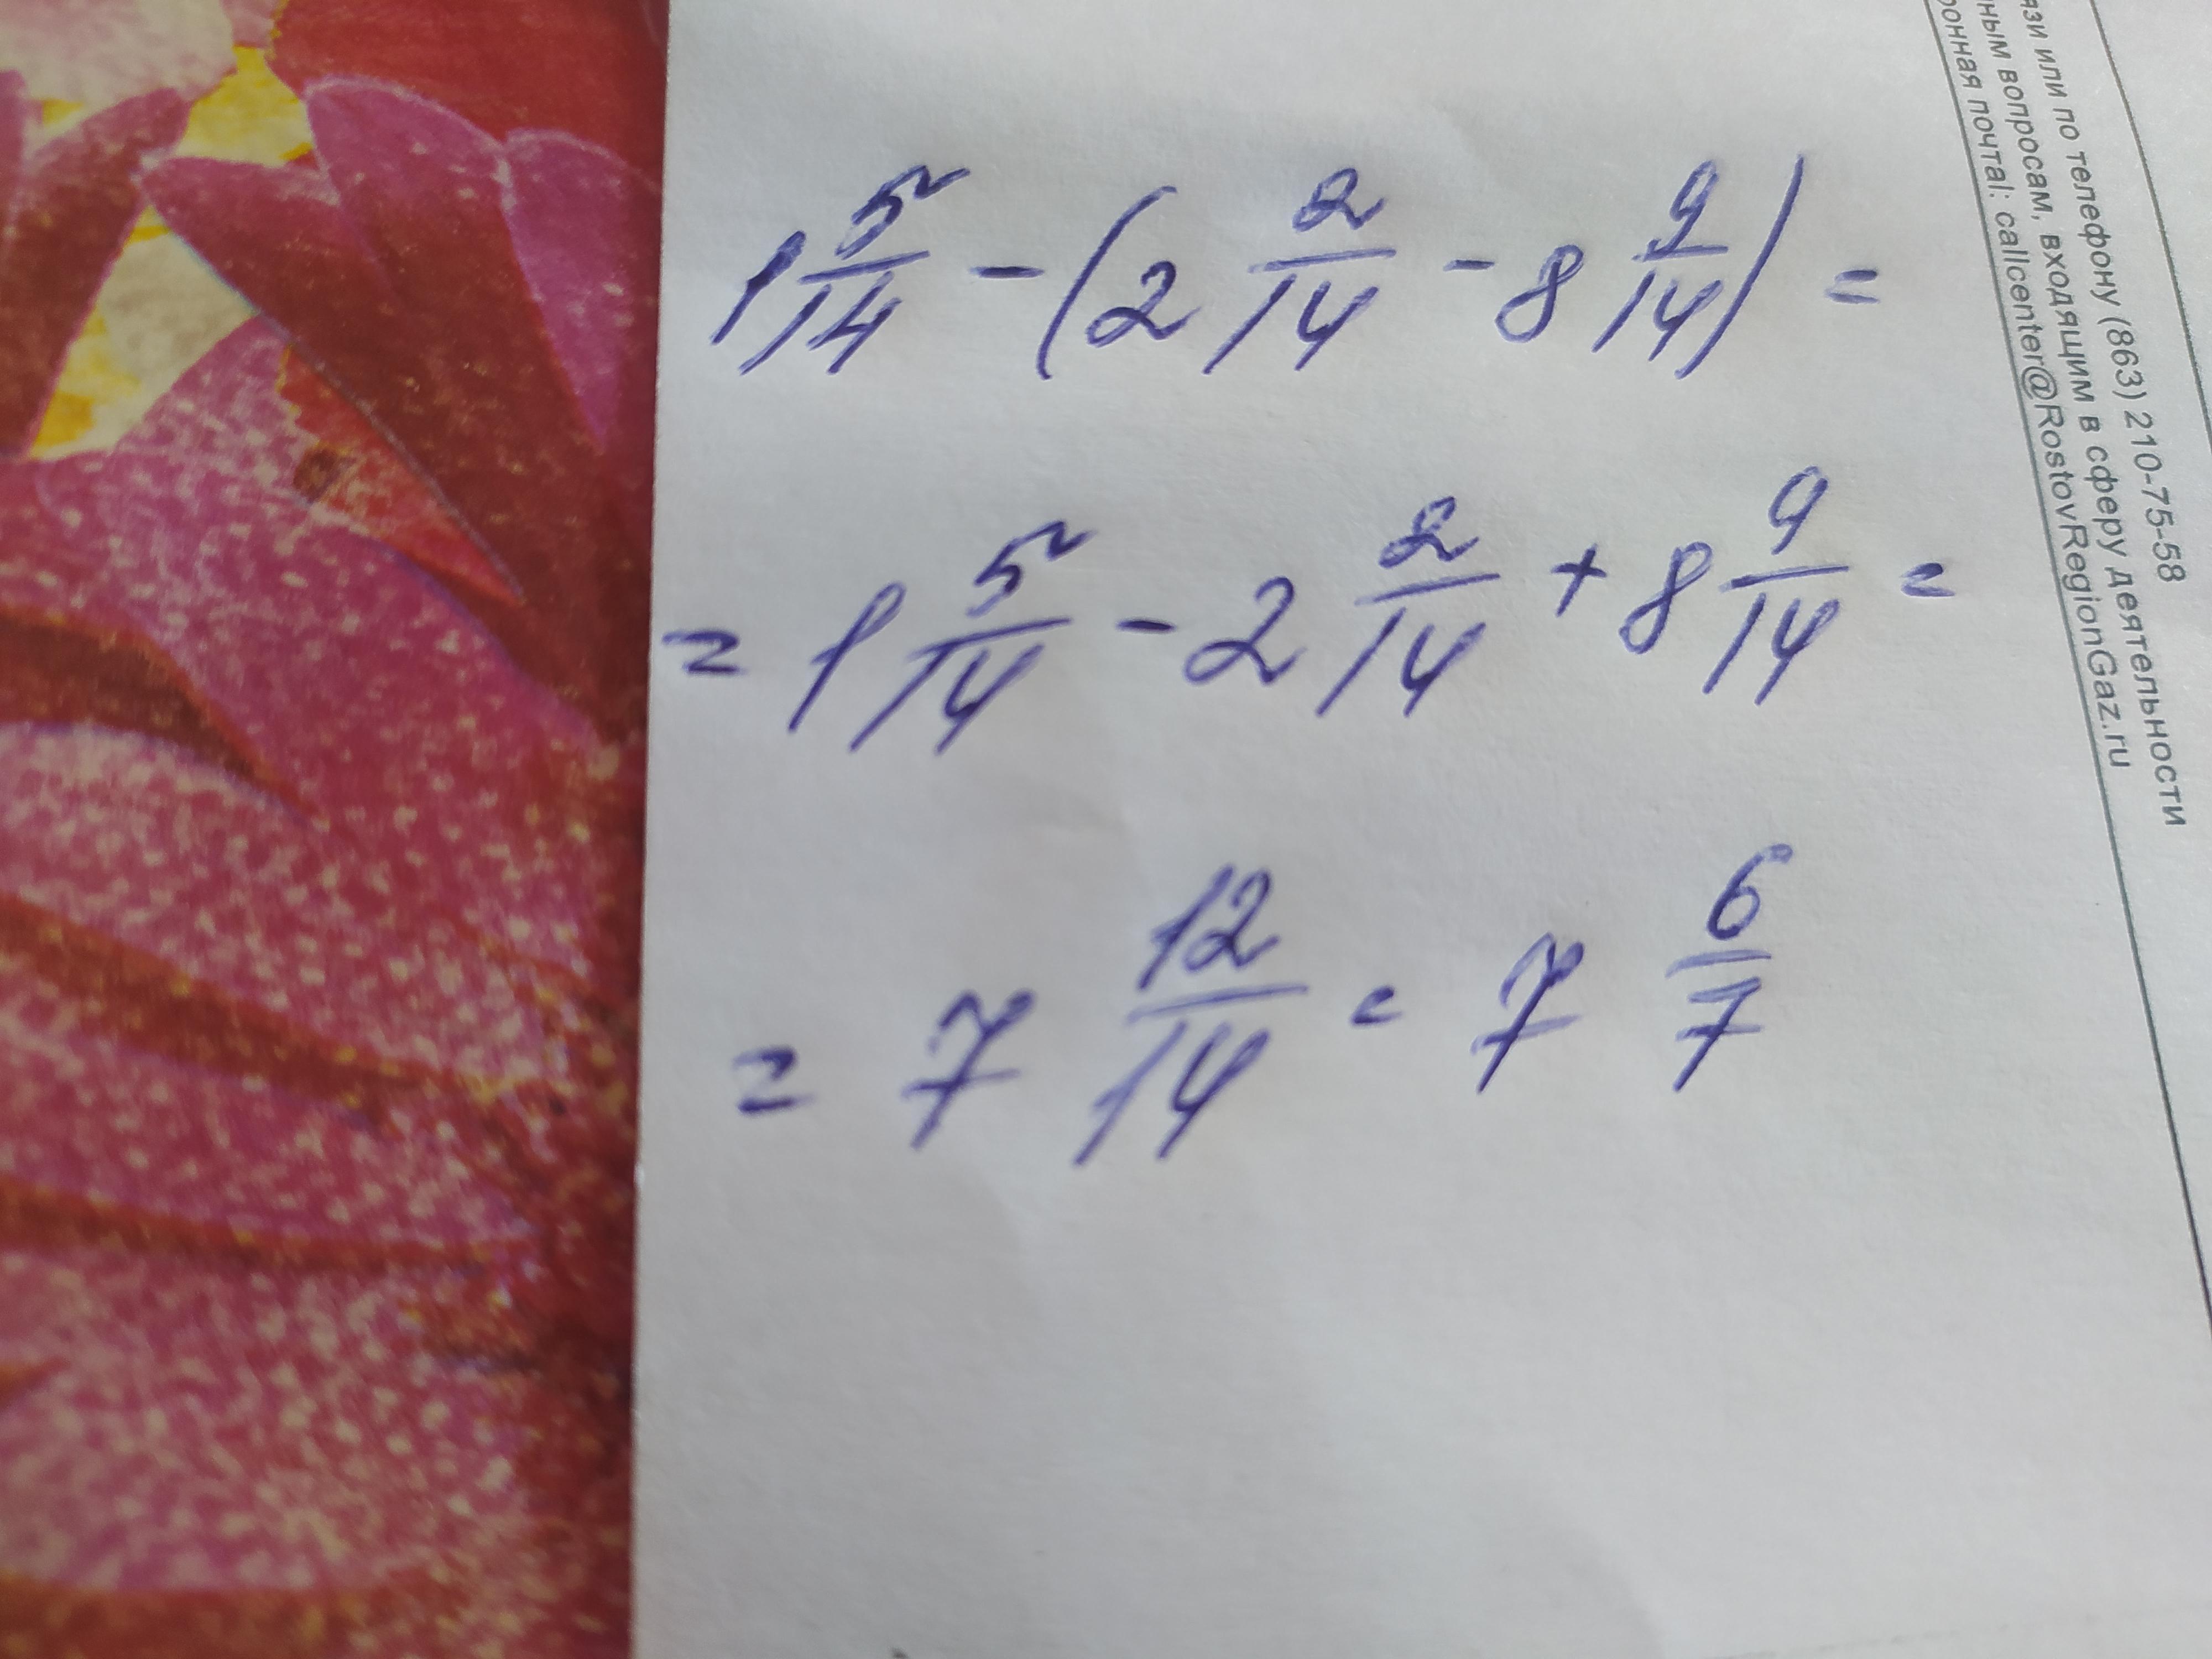 1 5/14 - (2 2/14 - 8 9/14) =
= 1 5/14 - 2 2/14 + 8 9/14 =
= 7 12/14 = 7 6/7
или по телефону (863) 210-75-58
вопросам, входящим в сферу деятельности
почта: callcenter@RostovRegionGaz.ru